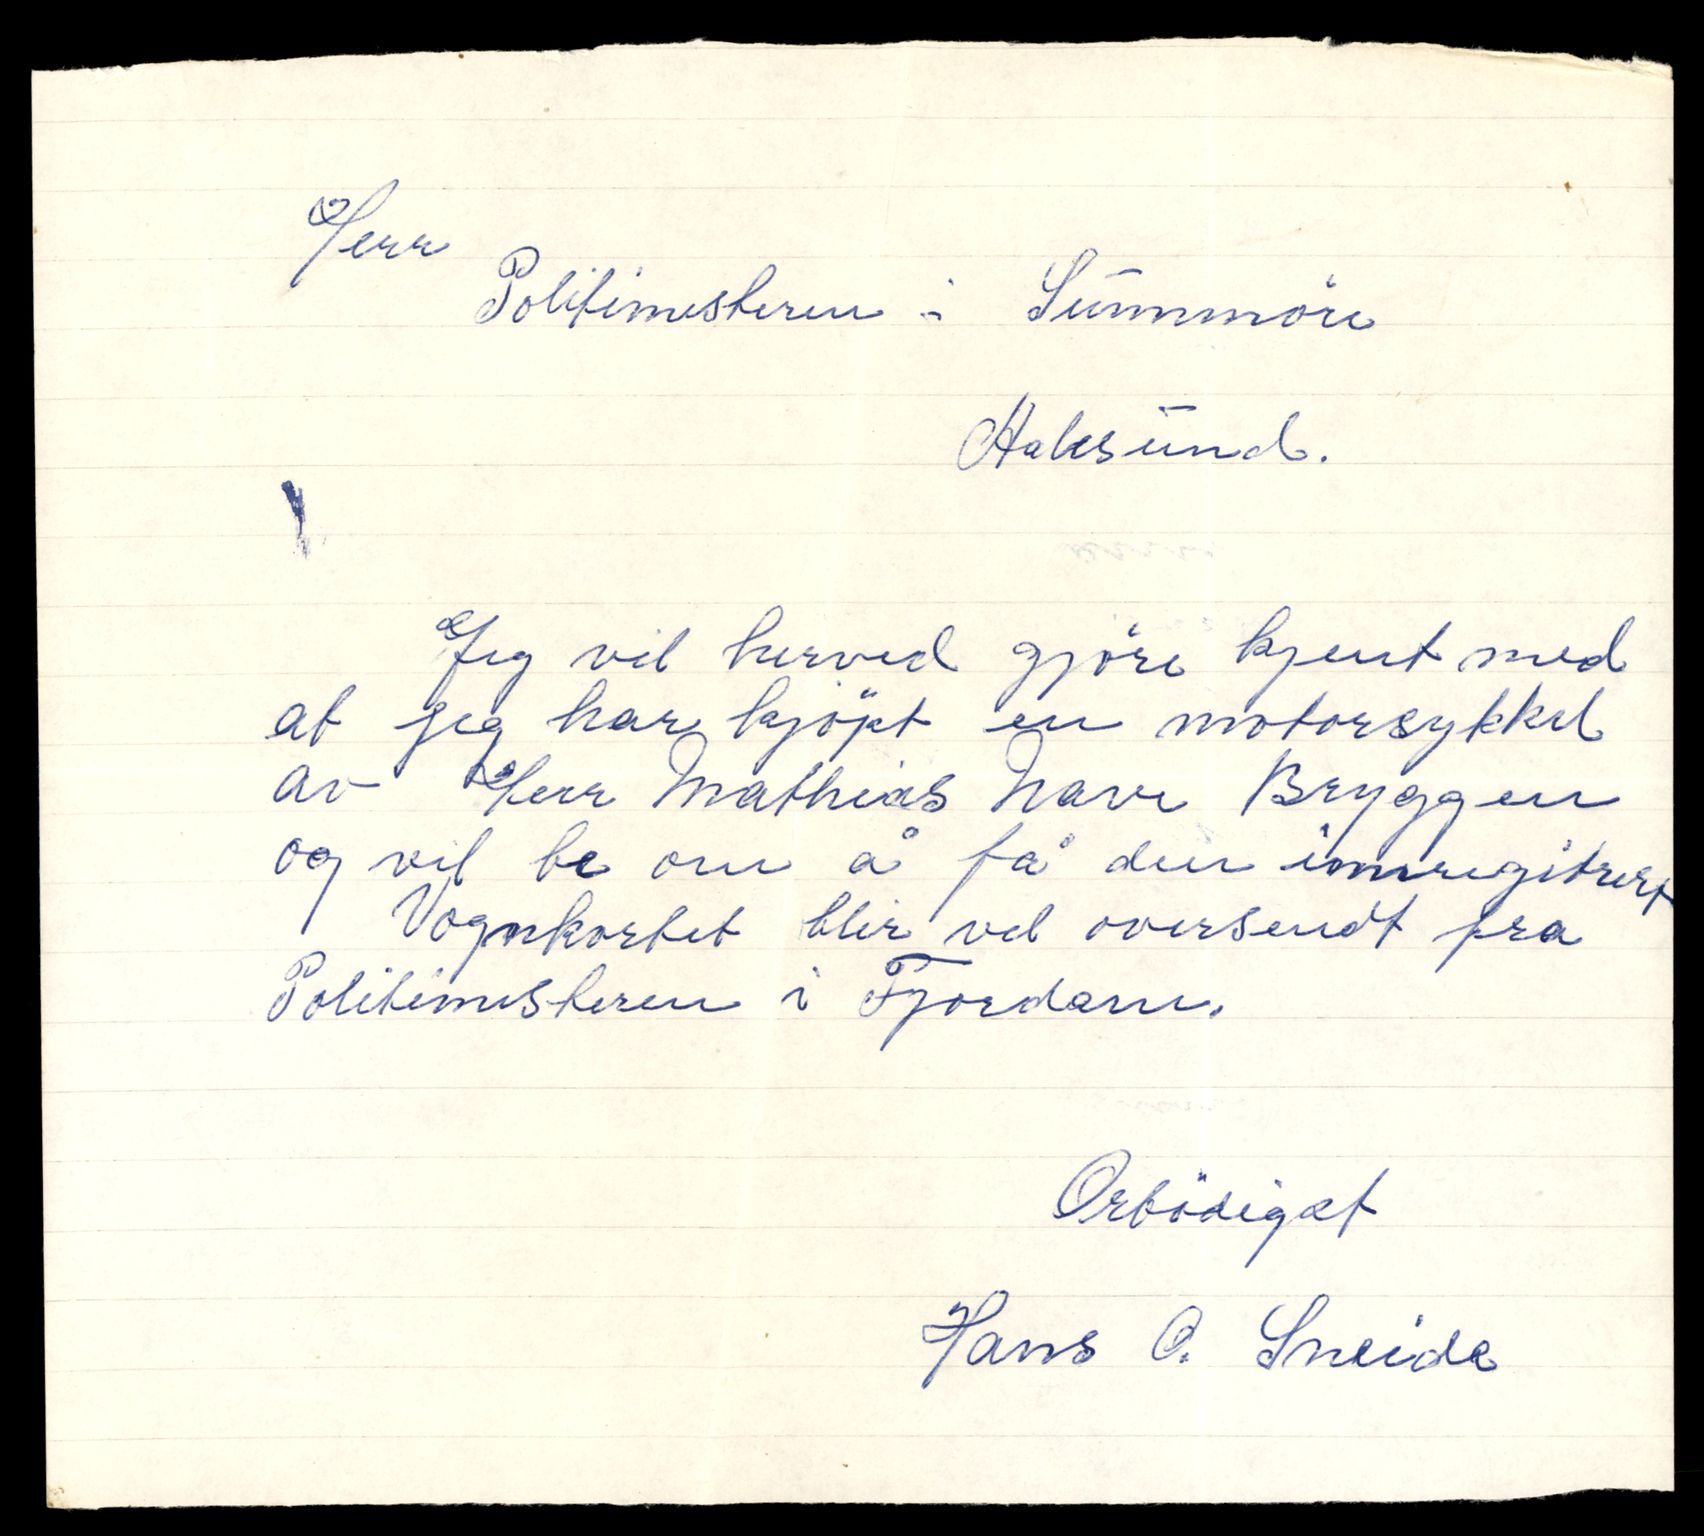 Herr
Politimesteren i Sunnmöre
Aalesund.
Jeg vil herved gjöre kjent med
at jeg har kjöpt en motorsykkel
av Herr Mathias Nave Bryggen
og vil be om å få den innregitrert
Vognkortet blir vel oversendt fra
Politimesteren i Fjordane.
Orbödigst
Hans O. Sneide